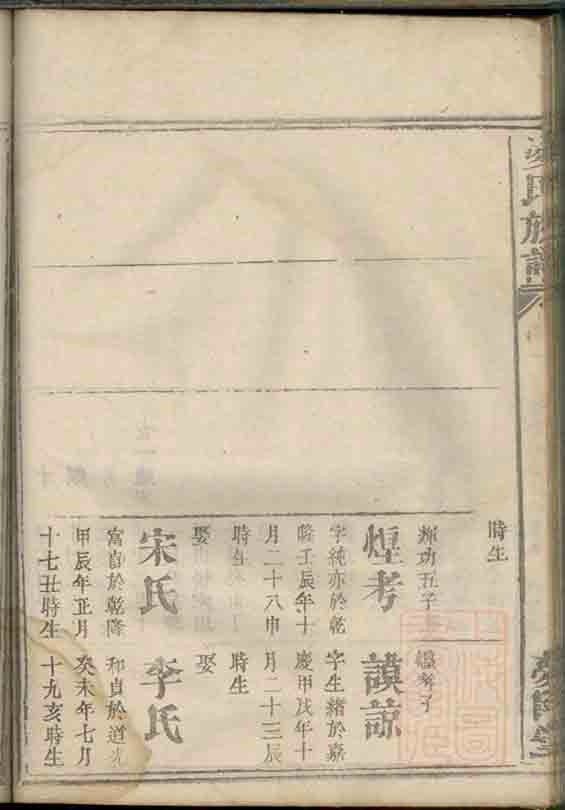 氏族譜
時生
輝功五子
煌考
字純亦於乾
隆壬辰年十
月二十八申
時生
娶
宋氏
富貞於乾隆
甲辰年正月
十七丑時生
煌考子
謨諒
字生緒於嘉
慶甲戌年十
月二十三辰
時生
娶
李氏
和貞於道光
癸未年七月
十九亥時生